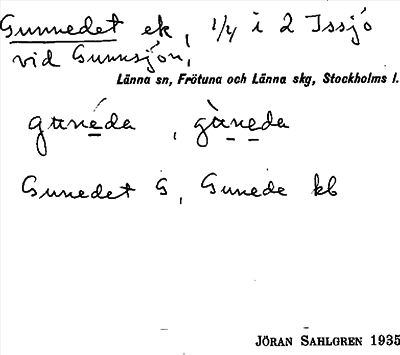 Gunnedet ek, 1/4 i 2 Issjö
vid Gunnsjön,
Länna sn, Frötuna och Länna skg, Stockholms l.
gunéda, gùneda
Gunedet G, Gunede kb
JÖRAN SAHLGREN 1935